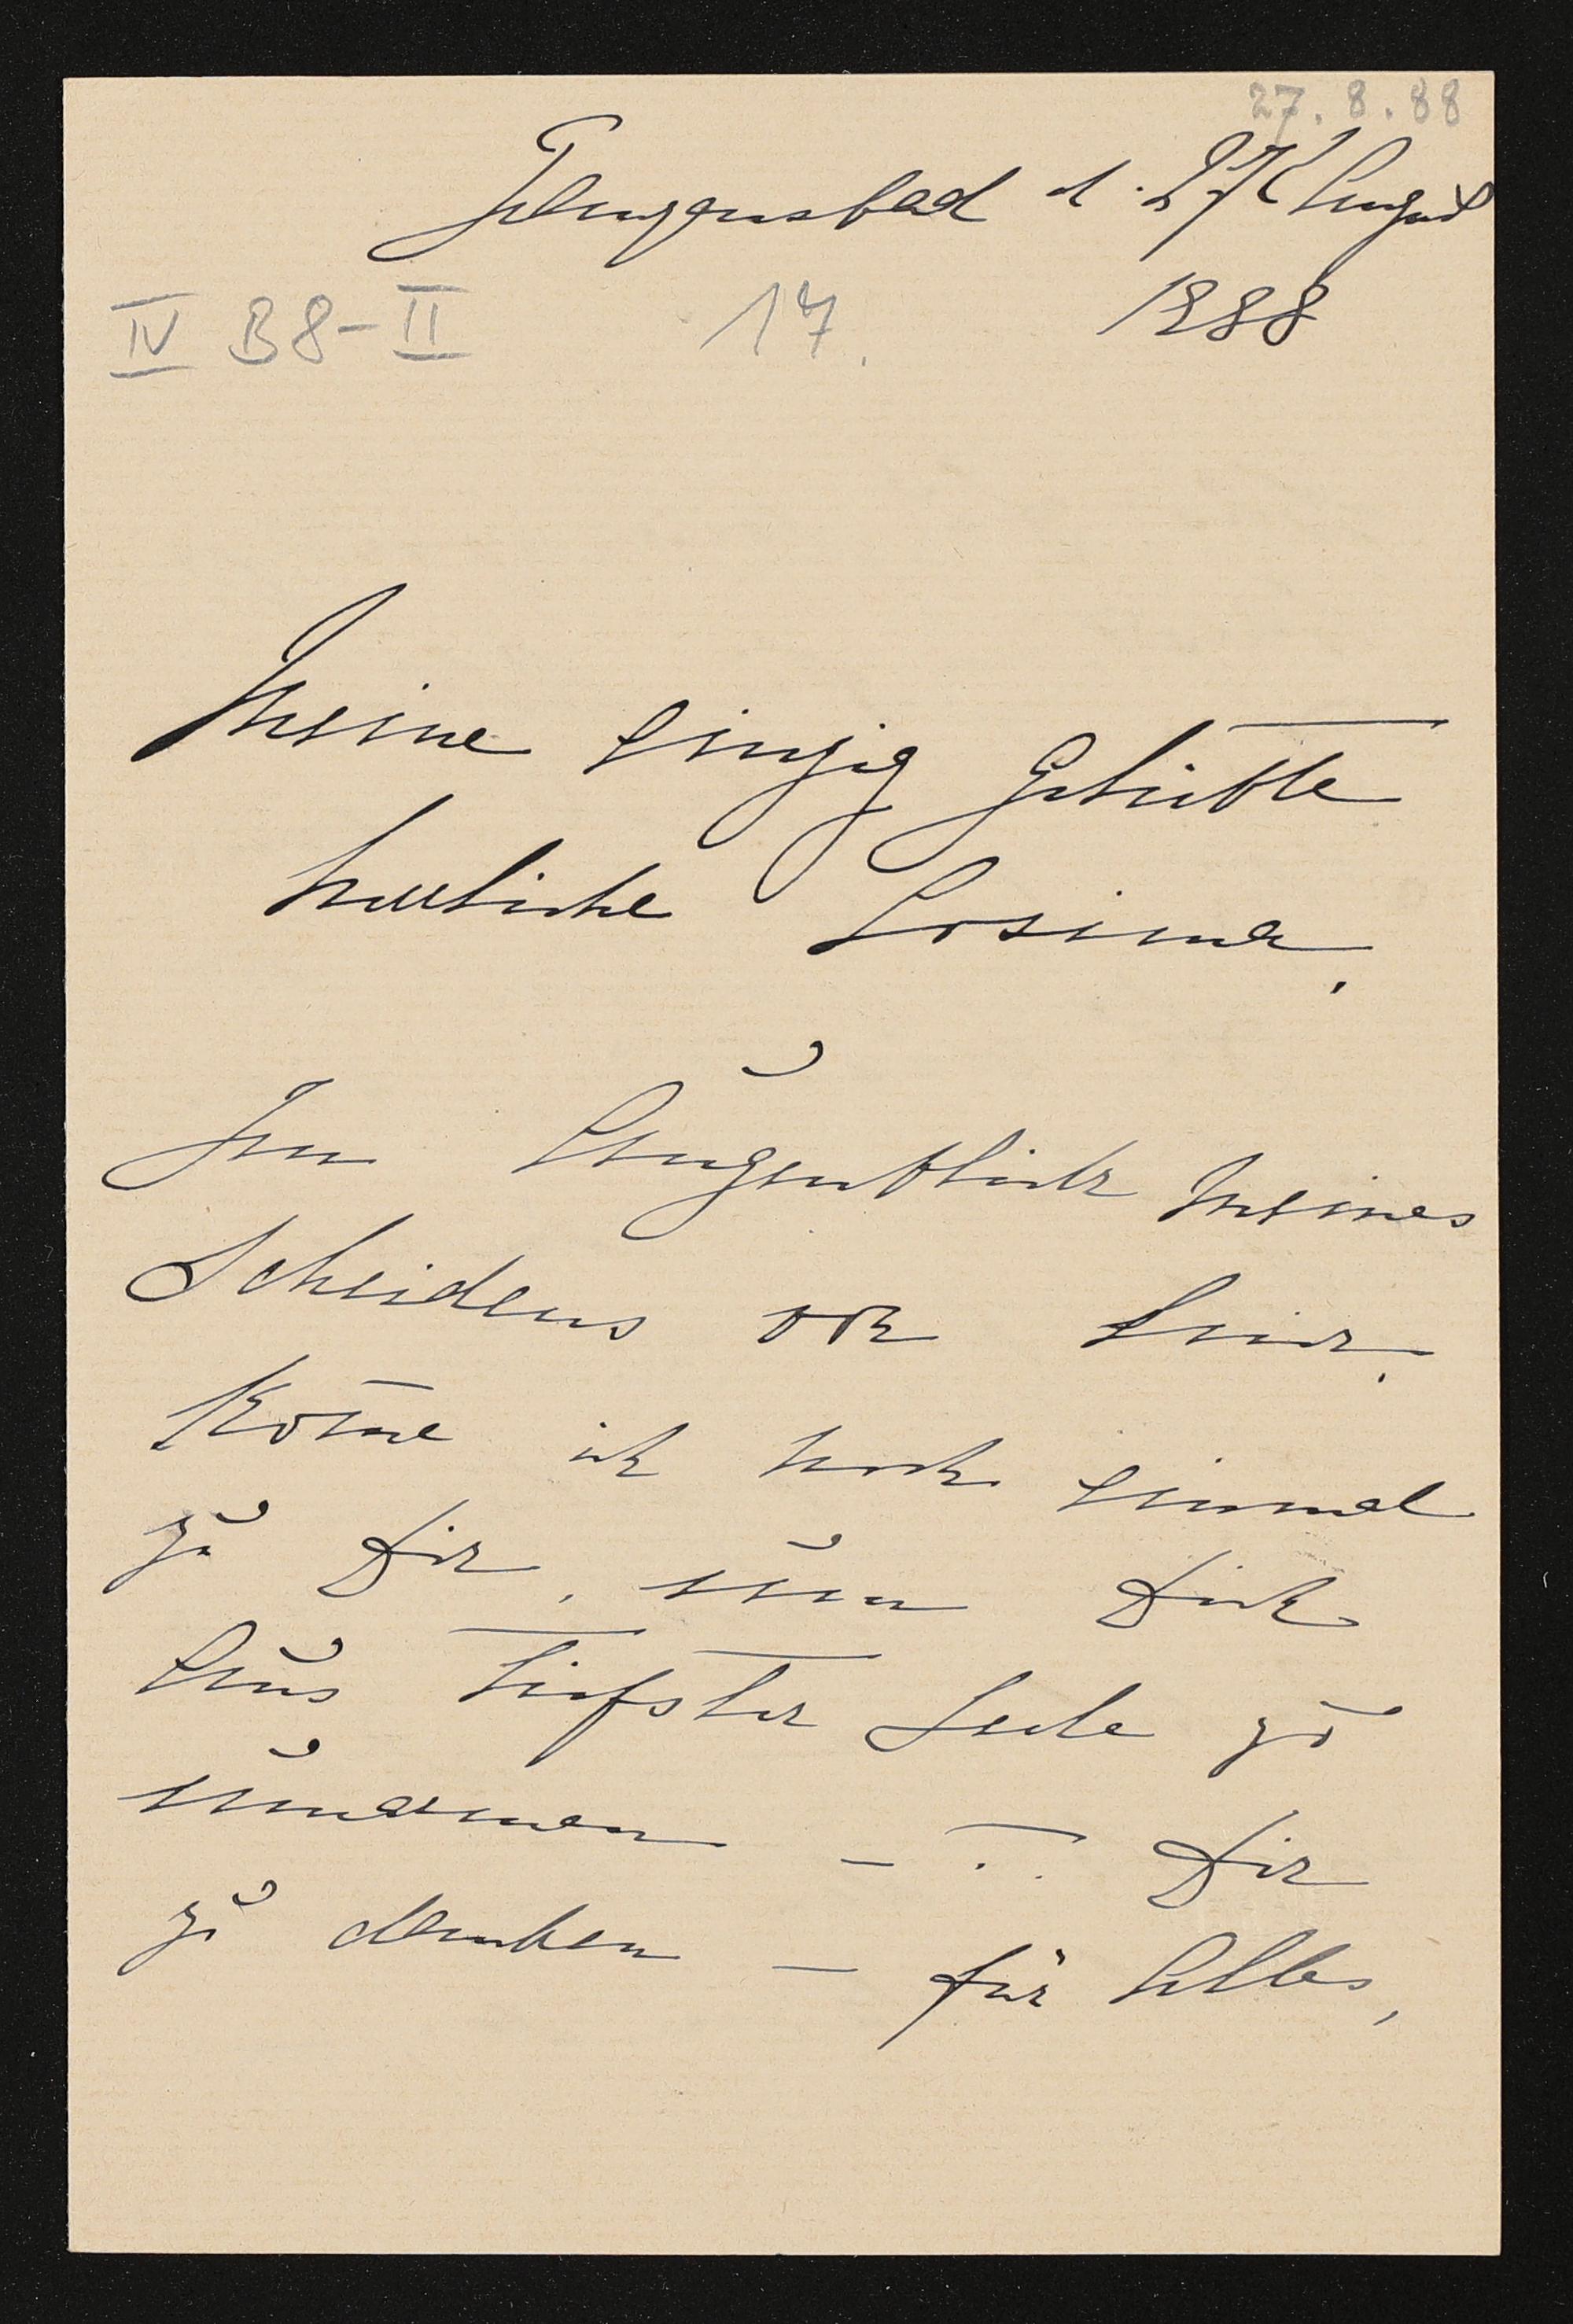 27. 8. 88
d. 27 August
IV B8-II 17. 1888
Meine einzig Geliebte
herrliche Cosima,
Im Augenblick meines
Scheidens von hier,
kom̄e ich noch einmal
zu Dir, um Dich
aus tiefster Seele zu
umarmen – Dir
zu danken – für Alles,